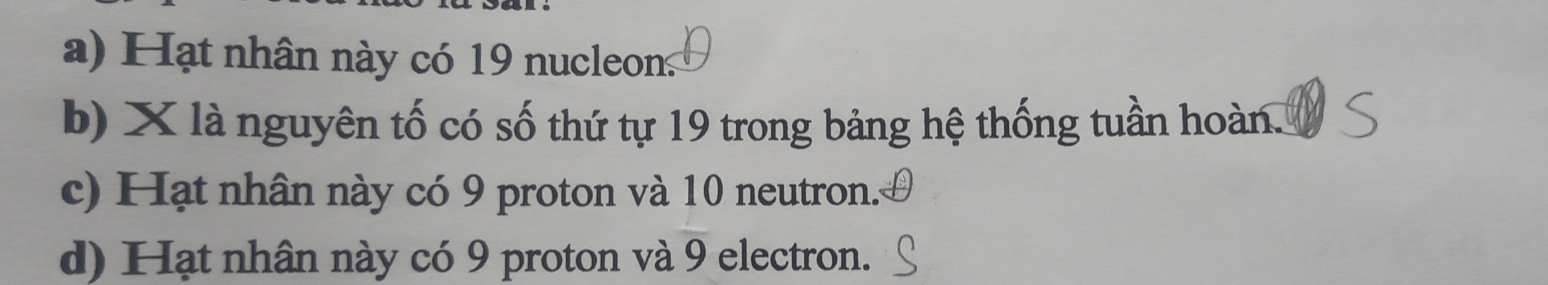 a) Hạt nhân này có 19 nucleon. Đ
b) X là nguyên tố có số thứ tự 19 trong bảng hệ thống tuần hoàn. S
c) Hạt nhân này có 9 proton và 10 neutron. Đ
d) Hạt nhân này có 9 proton và 9 electron. S